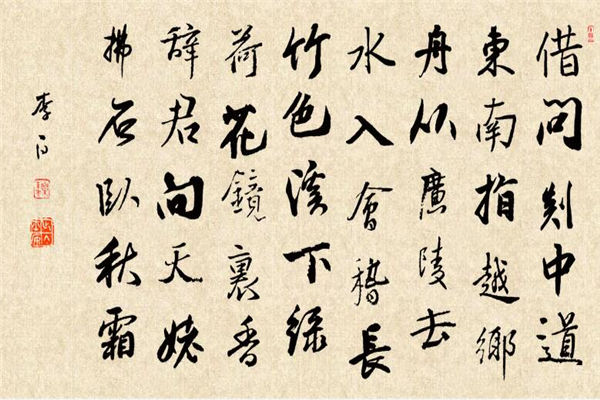 借问剡中道
东南指越乡
舟从广陵去
水入会稽长
竹色溪下绿
荷花镜里香
辞君向天姥
拂石卧秋霜
李白